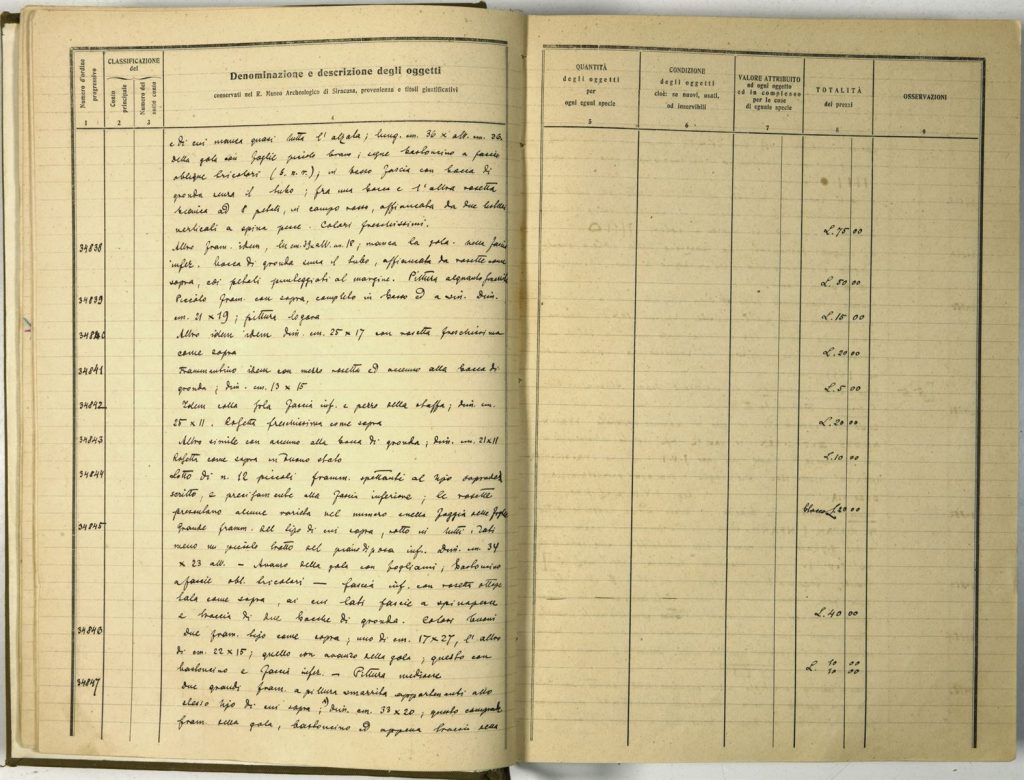 Numero d'ordine progressivo
CLASSIFICAZIONE del
Conto principale
Numero del sotto conto
Denominazione e descrizione degli oggetti
conservati nel R. Museo Archeologico di Siracusa, provenienza e titoli giustificativi
1 2 3 4
e di cui manca quasi tutta l'alzata; lung. cm. 36 x alt. cm. 26
della gola con foglie piccole brano; segue bastoncino a fascie
oblique tricolori (b. n. r.); in basso fascia con bocca di
gronda senza il tubo; fra una bocca e l'altra rosetta
bianca ad 8 petali, in campo rosso, affiancata da due
verticali a spina pesce. Colori freschissimi.
34838 Altro fram. idem, alt. m. 18; manca la gola. nella fascia
infer. bocca di gronda senza il tubo, affiancata da rosette come
sopra, coi petali punteggiati al margine. Pittura alquanto
34839 Piccolo fram. con sopra, completo in basso ed a sin. Dim.
cm. 21 x 19; pittura logora
34840 Altro idem idem dim. cm. 25 x 17 con rosetta freschissima
come sopra
34841 Frammentino idem con mezza rosetta ed accenno alla bocca di
gronda; dim. cm. 13 x 15
34842 Idem colla sola fascia inf. e pezzo della staffa; dim. cm.
25 x 11. Rosetta freschissima come sopra
34843 Altro simile con accenno alla bocca di gronda; dim. cm. 21 x 11
Rosetta come sopra in buono stato
34844 Lotto di n. 12 piccoli framm. spettanti al tipo sopradescritto, e precisamente alla fascia inferiore; le rosette
presentano alcune varietà nel numero e nella foggia delle foglie
34845 Grande framm. del tipo di cui sopra, rotto in tutti i lati
meno un piccolo tratto del piano di posa inf. Dim. cm. 34
x 23 alt. — Avanzo della gola con fogliami; bastoncino
a fascie obl. tricolori — fascia inf. con rosetta
come sopra, ai cui lati fascie a spinapesce
e traccia di due bocche di gronda. Colori buoni
34846 due fram. tipo come sopra; uno di cm. 17 x 27, l'altro
di cm. 22 x 15; quello con avanzo della gola, questo con
bastoncino e fascia infer. — Pittura mediocre
34847 due grandi fram. a pittura smarrita appartenenti allo
stesso tipo di cui sopra; a) dim. cm. 33 x 20; questo comprende
fram. della gola, bastoncino ed appena traccia della
QUANTITÀ degli oggetti per ogni egual specie
CONDIZIONE degli oggetti cioè: se nuovi, usati, od inservibili
VALORE ATTRIBUITO ad ogni oggetto ed in complesso per le cose di eguale specie
TOTALITÀ dei prezzi
OSSERVAZIONI
5 6 7 8 9
L. 75 00
L. 50 00
L. 15 00
L. 20 00
L. 5 00
L. 20 00
L. 10 00
L. 20 00
L. 40 00
L. 10 00
10 00